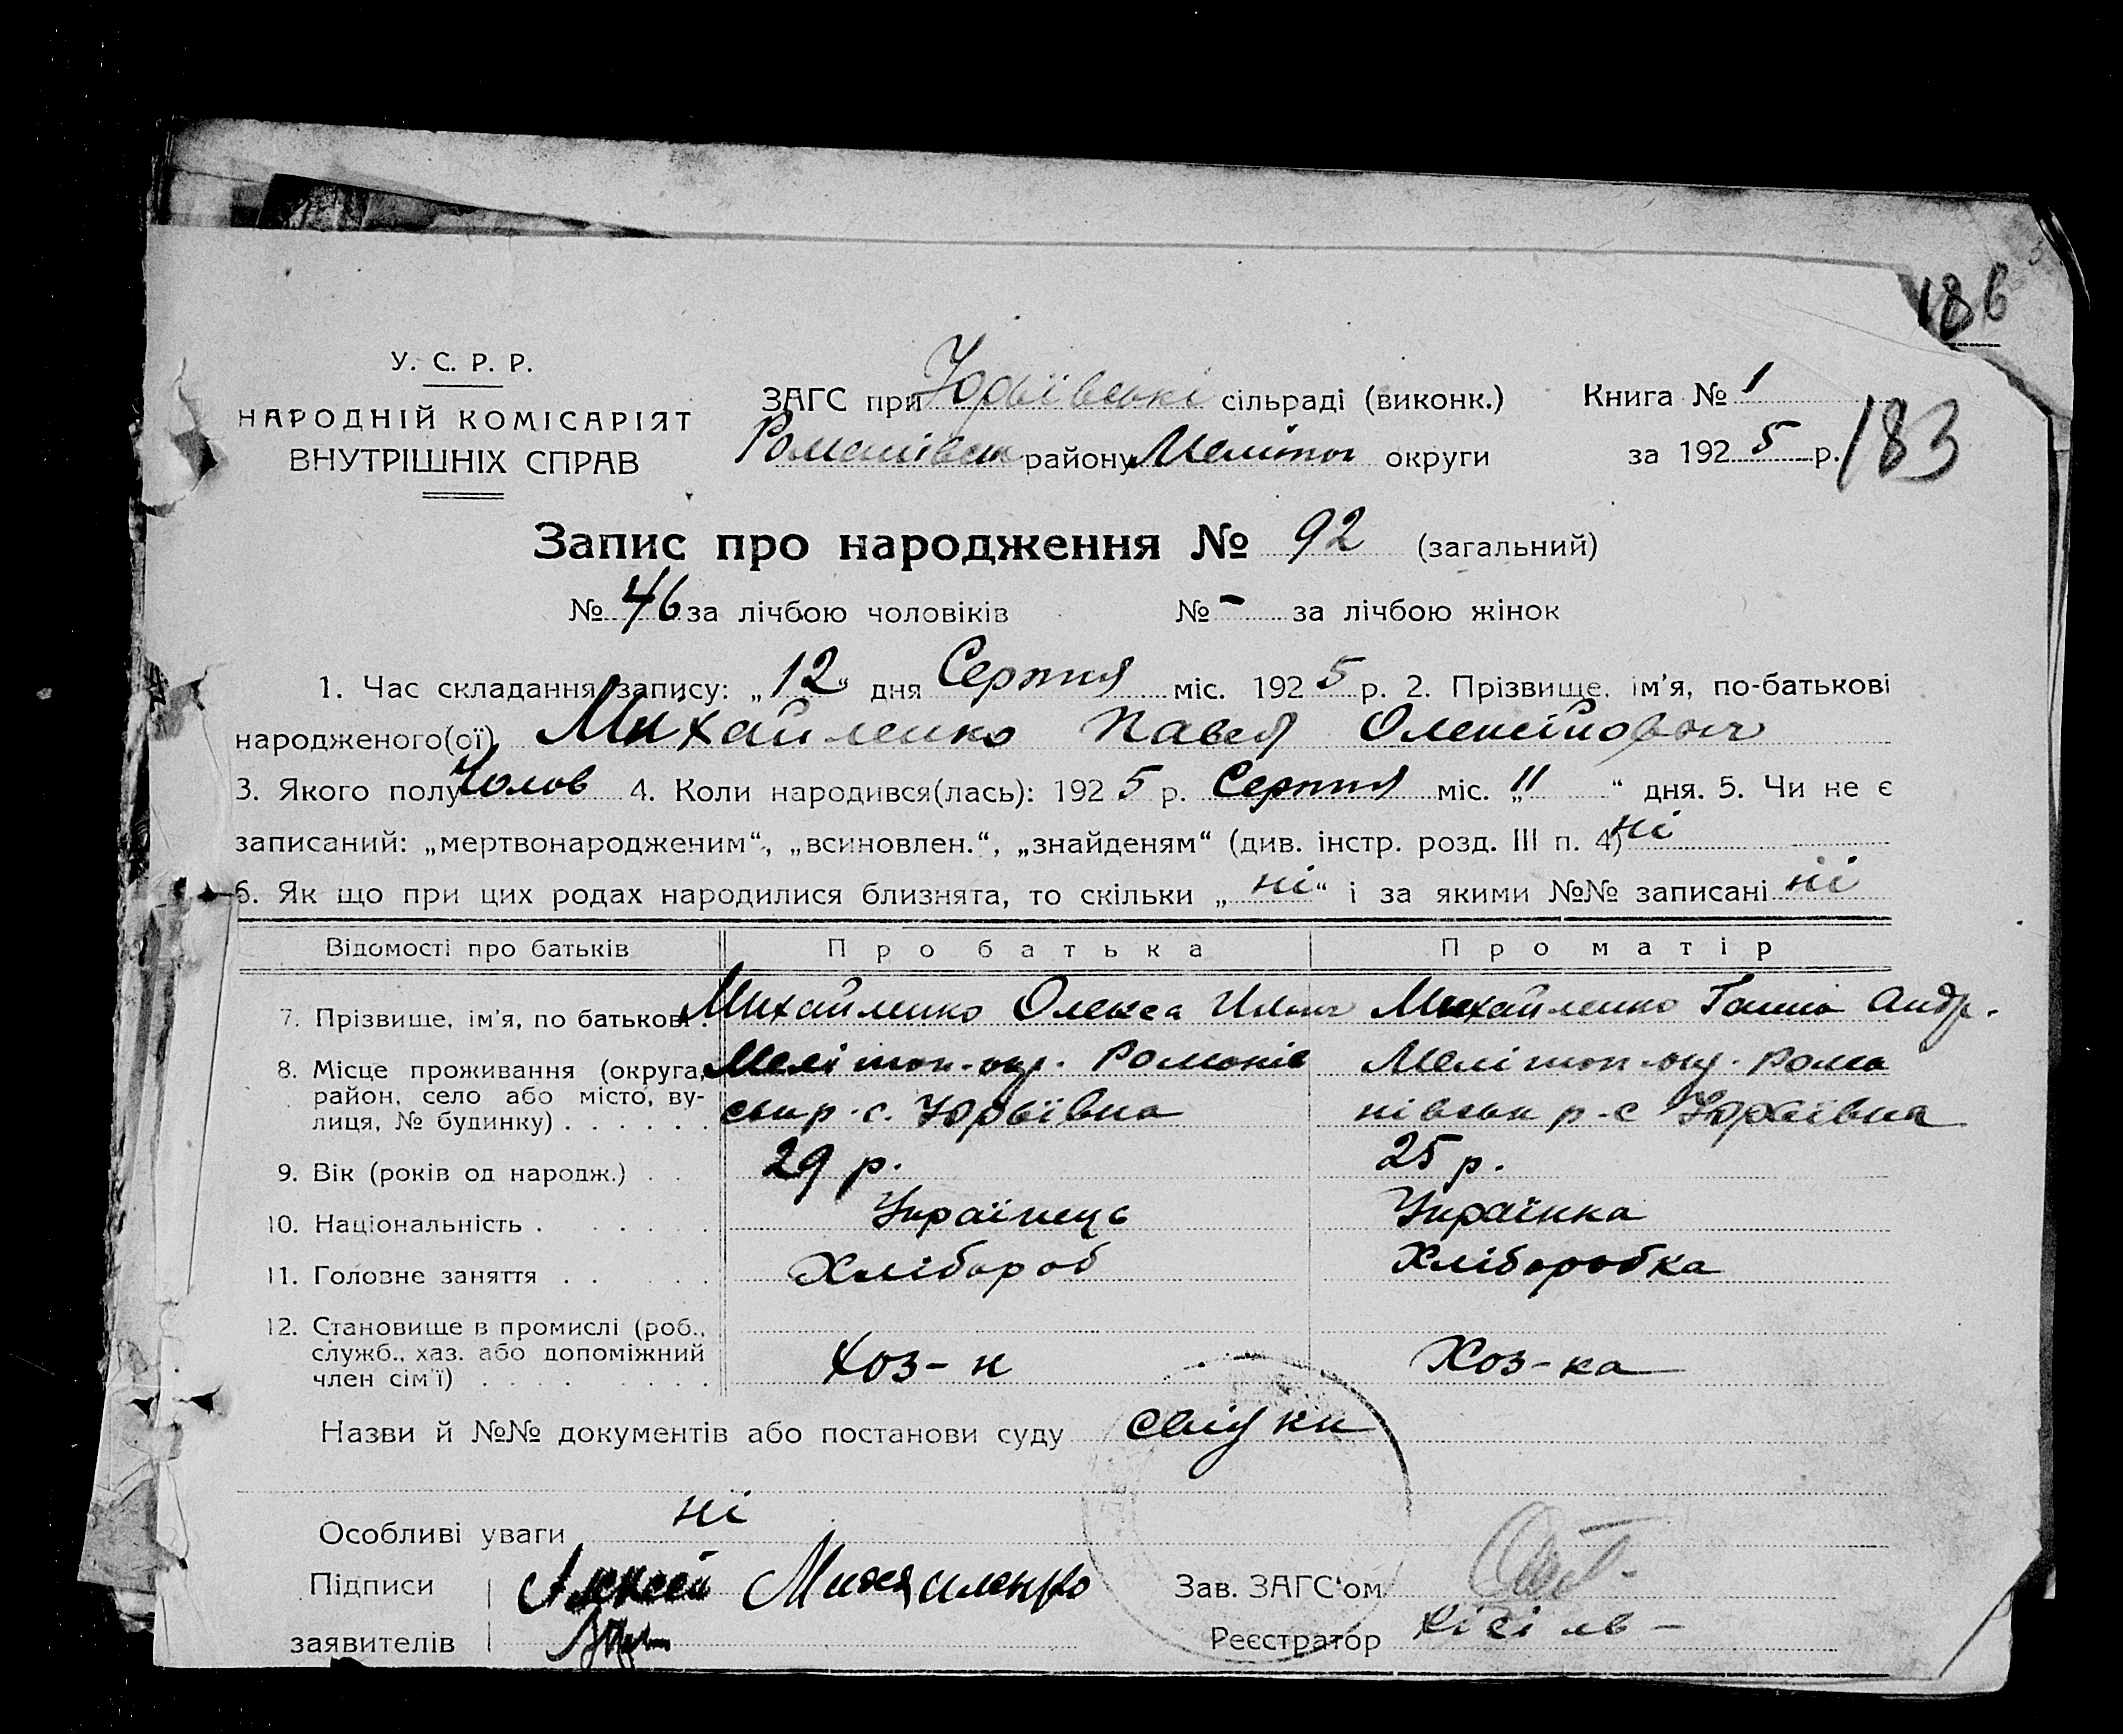 186
У. С. Р. Р.
НАРОДНІЙ КОМІСАРІЯТ
ВНУТРІШНІХ СПРАВ
ЗАГС при Юрьївські сільраді (виконк.)
Романівськ району Мелітоп округи
Книга № 1
за 1925 р.
183
Запис про народження № 92 (загальний)
№ 46 за лічбою чоловіків № - за лічбою жінок
1. Час складання запису: „12“ дня Серпня міс. 1925 р. 2. Прізвище, ім'я, по-батькові
народженого(ої) Михайленко Павел Олексійович
3. Якого полу Чолов 4. Коли народився(лась): 1925 р. Серпня міс. „11“ дня. 5. Чи не є
записаний: „мертвонародженим“, „всиновлен.“, „знайденям“ (див. інстр. розд. III п. 4) ні
6. Як що при цих родах народилися близнята, то скільки „ні“ і за якими №№ записані ні
Відомості про батьків Про батька Про матір
7. Прізвище, ім'я, по батькові. Михайленко Олекса Ильич Михайленко Ганна Андр.
8. Місце проживання (округа, Мелітоп. окр. Романів Мелітоп. окр. Рома
район, село або місто, ву-
лиця, № будинку) . . . . . . ськ р. с. Юрьївка нівськ р. с Юрьївка
9. Вік (років од народж.) . . 29 р. 25 р.
10. Національність . . . . . . Українець Українка
11. Головне заняття . . . . . . Хлібороб Хліборобка
12. Становище в промислі (роб.,
служб., хаз. або допоміжний
член сім'ї) . . . . . . . . Хоз-н Хоз-ка
Назви й №№ документів або постанови суду свідки
Особливі уваги ні
Підписи Алексей Михайленко Зав. ЗАГС'ом
заявителів Реєстратор Кісіль -